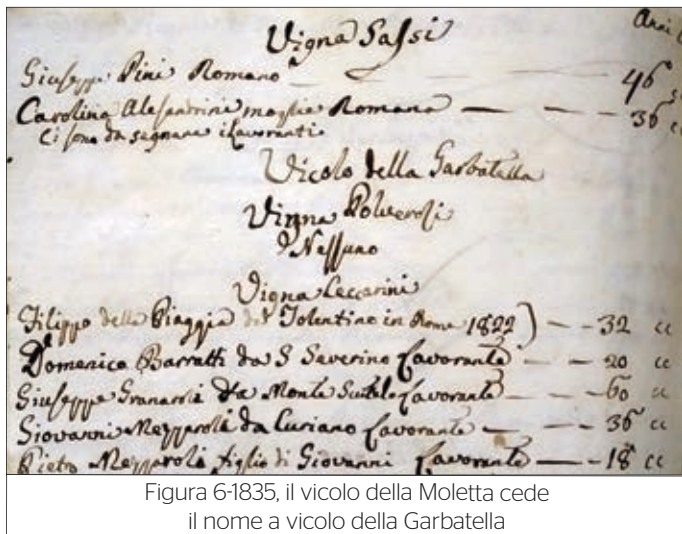 Vigna Sassi
Anni
Giuseppe Pini Romano — — — 46
Carolina Alesandrini moglie Romana — — 36
Ci sono da segnare i Lavoranti
Vicolo della Garbatella
Vigna Polverosi
Nessuno
Vigna Ceccarini
Filippo della Piaggia da Tolentino in Roma 1822) — — 32 cc
Domenico Barratti da S Severino Lavorante — — 20 cc
Giuseppe Granaroli da Monte Lavorante — — 60 cc
Giovanni Mezzaroli da Curiano Lavorante — — 36 cc
Pietro Mezzaroli figlio di Giovanni Lavorante — — 18 cc
Figura 6-1835, il vicolo della Moletta cede
il nome a vicolo della Garbatella